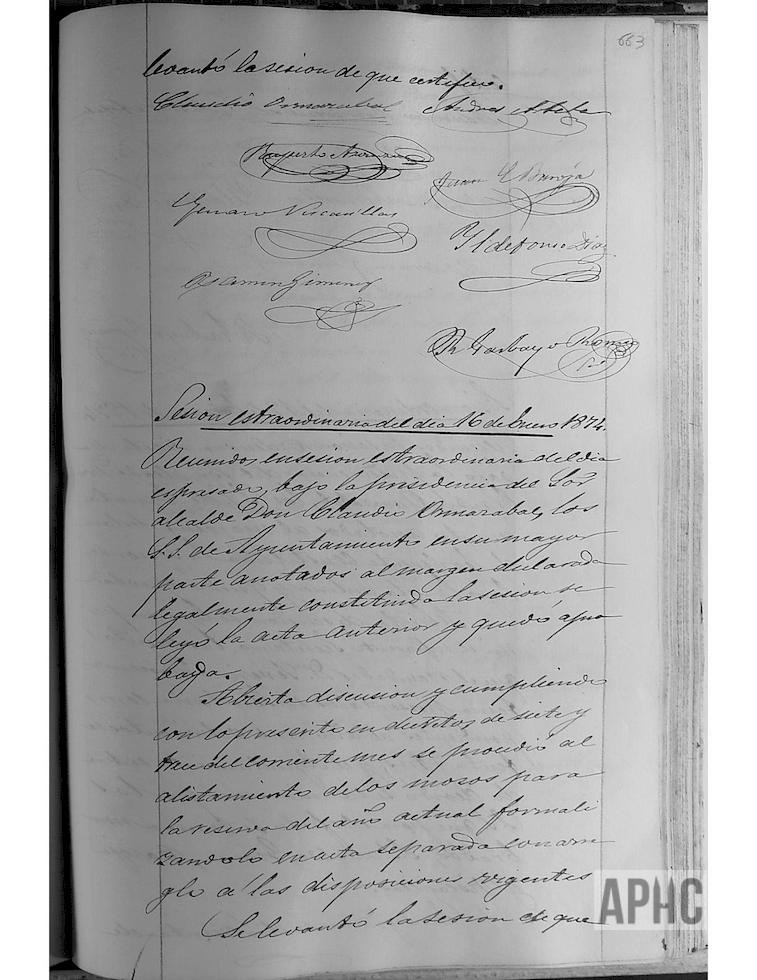 663
levantó la sesion de que certifico.
Claudio Ormazabal Andres
Ruperto
Juan C Baroja
Genaro Viscasillas
Yldefonso Diaz
Gimenez
Garbayo
Sesion estraordinaria del dia 16 de Enero 1874.
Reunidos en sesion estraordinaria del dia
espresado, bajo la presidencia del Sor
alcalde Don Claudio Ormazabal, los
S.S. de Ayuntamiento en su mayor
parte anotados al margen declarada
legalmente constituida la sesion se
leyó la acta anterior y quedó apro
bada.
Abierta discusion y cumpliendo
con lo presente en decretos de siete y
trece del corriente mes se procedió al
alistamiento de los mosos para
la reserva del año actual formali
zandolo en acta separada con arre
glo á las disposiciones vigentes
Se levantó la sesion de que
APHC